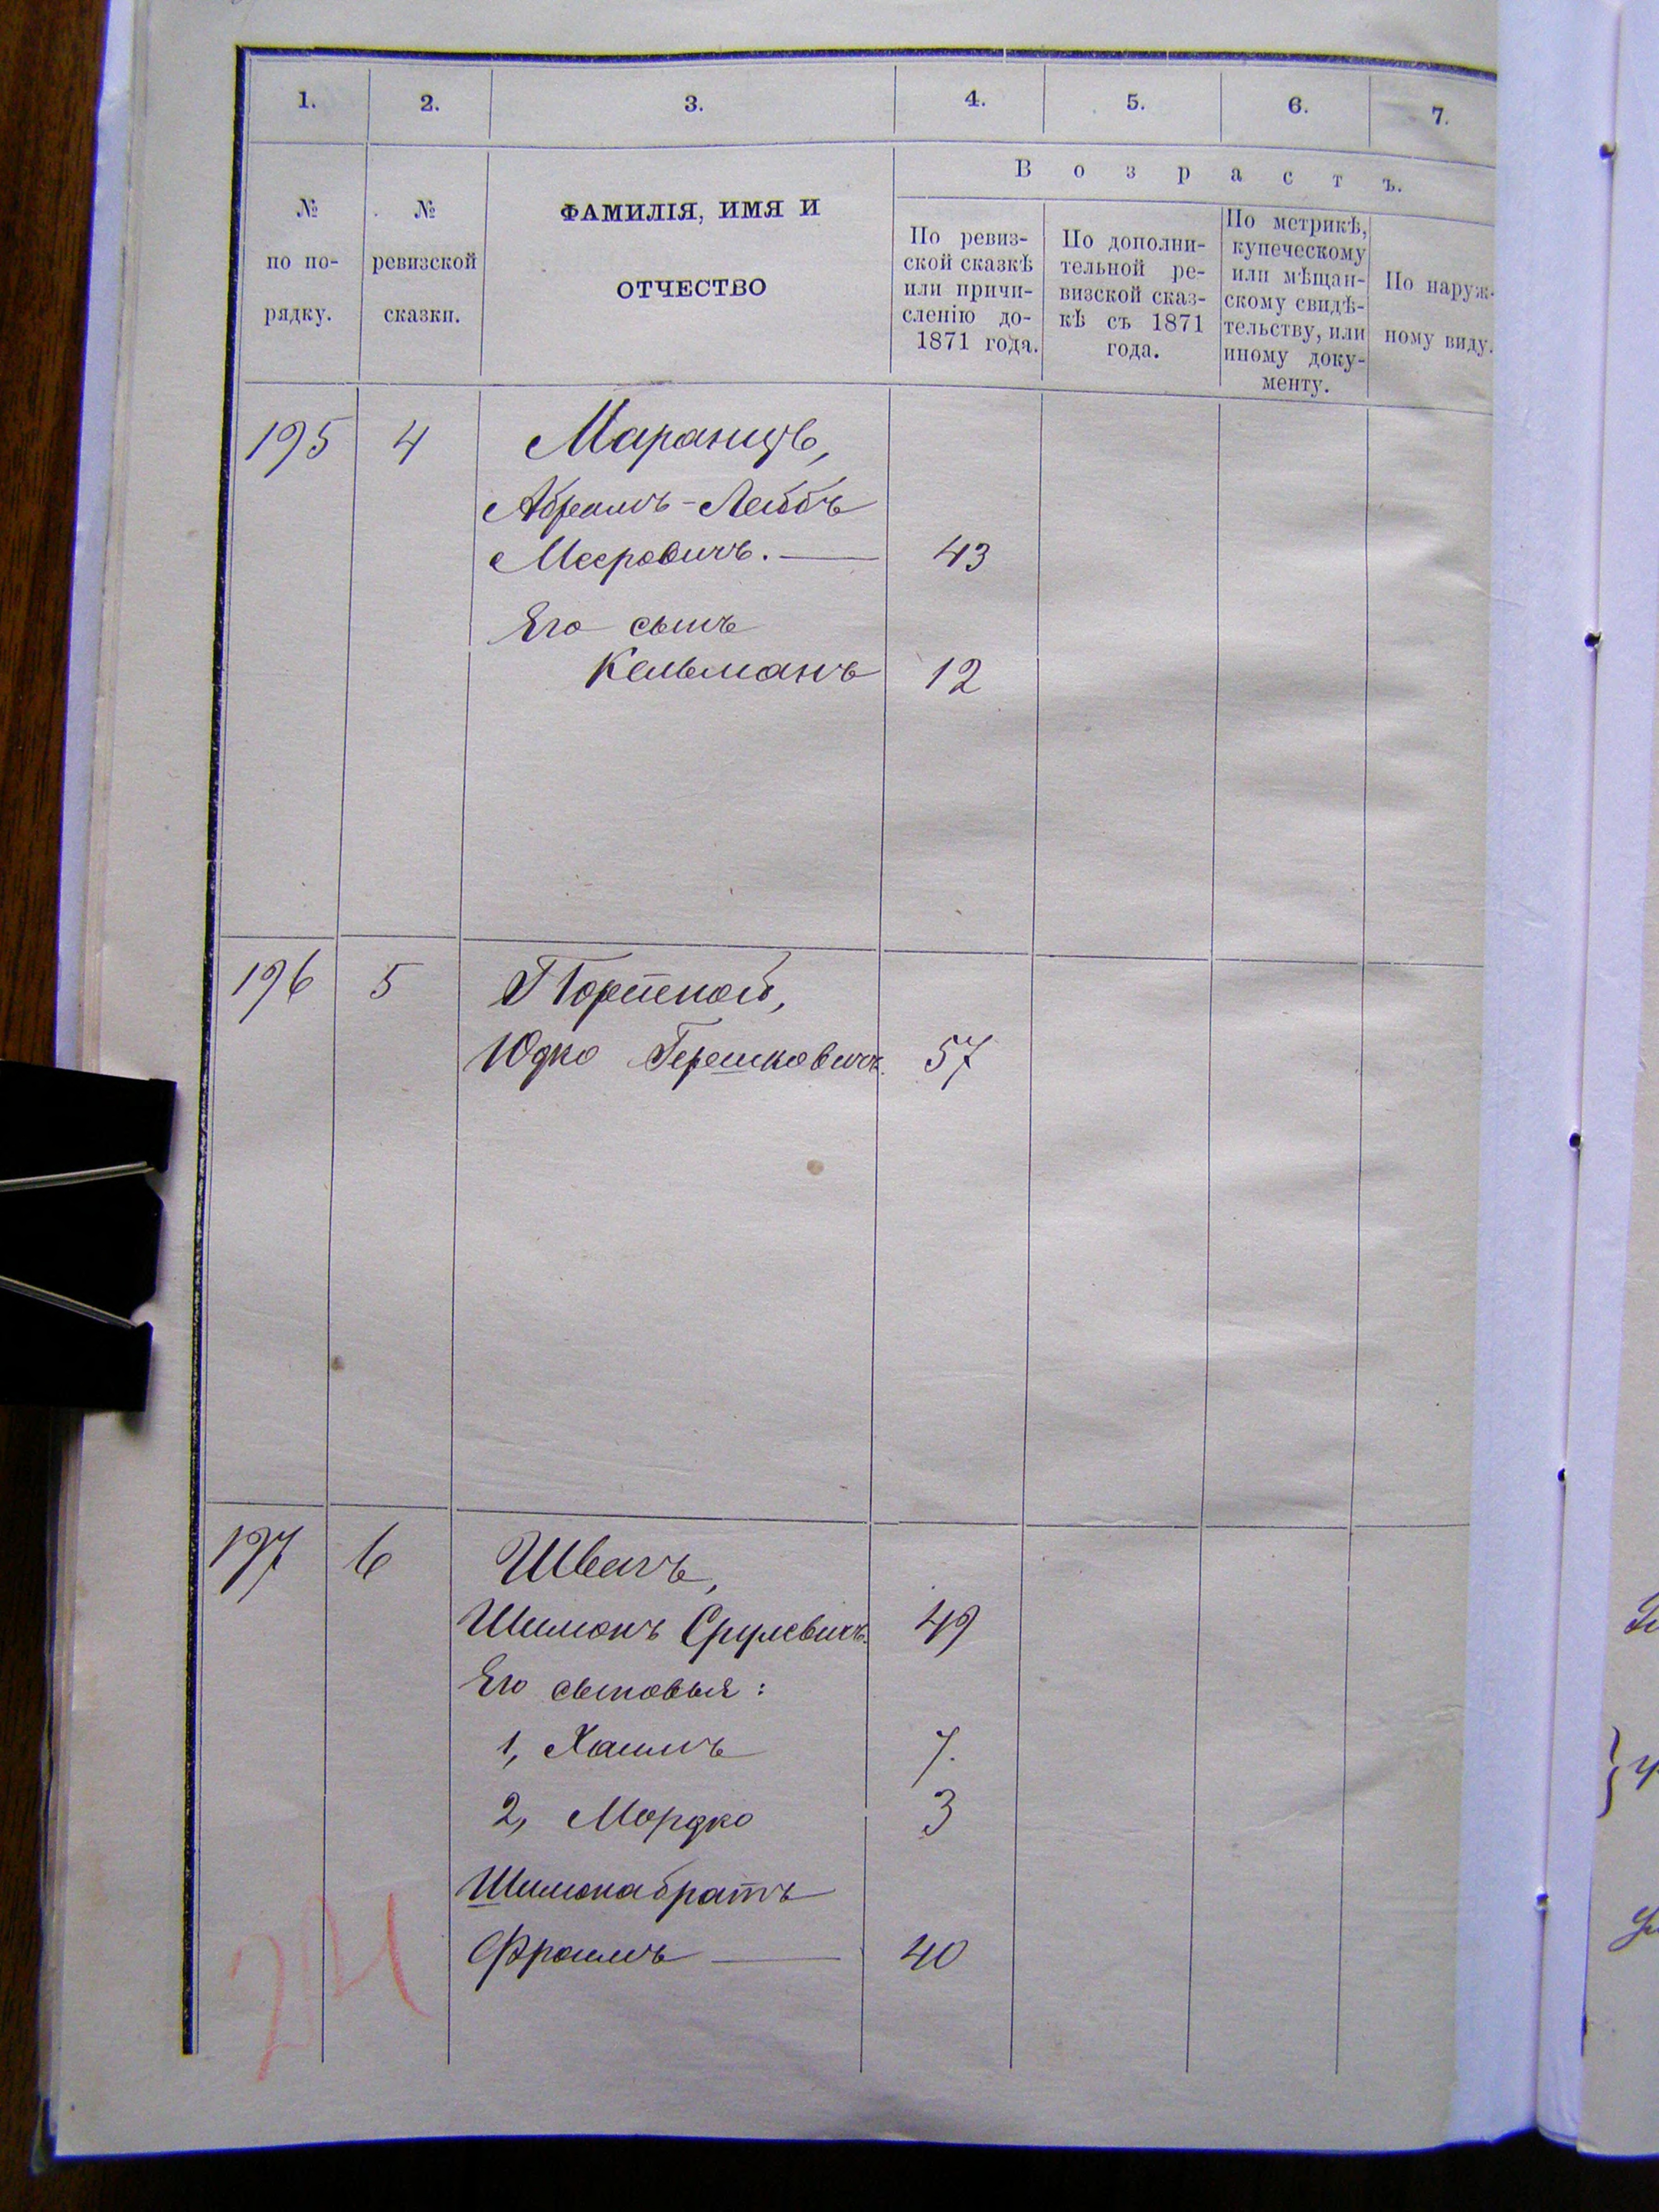 1. 2. 3. 4. 5. 6. 7.
№ по по-рядку.
№ ревизской сказки.
ФАМИЛІЯ, ИМЯ И
ОТЧЕСТВО
Возрастъ.
По ревиз-
ской сказкѣ
или причи-
сленію до-
1871 года.
По дополни-
тельной ре-
визской сказ-
кѣ съ 1871
года.
По метрикѣ,
купеческому
или мѣщан-
скому свидѣ-
тельству, или
иному доку-
менту.
По наруж-
ному виду.
195 4 Маранцъ,
Абрамъ-Лейбъ
Мееровичъ. — 43
Его сынъ
Кельманъ 12
196 5 Портной,
Юдко Гершковичъ. 57
197 6 Швачъ,
Шимонъ Срулевичъ. 49
Его сыновья:
1, Хаимъ 7.
2, Мордко 3
Шимона братъ
Фроимъ — 40